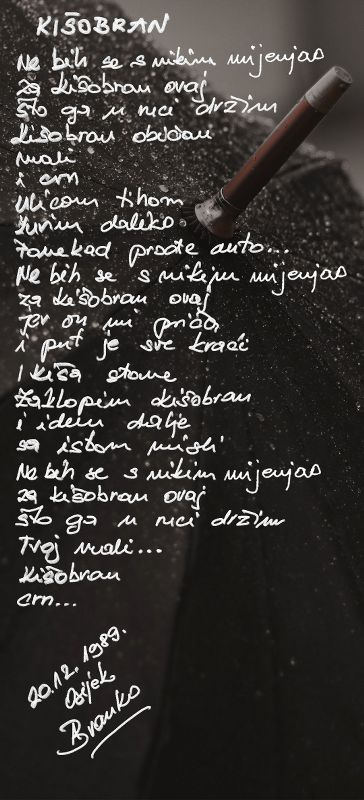 KIŠOBRAN
Ne bih se s nikim mijenjao
za kišobran ovaj
što ga u ruci držim
kišobran običan
mali
i crn
Ulicom tihom
žurim daleko
Ponekad prođe auto...
Ne bih se s nikim mijenjao
za kišobran ovaj
Jer on mi priča
i put je sve kraći
I kiša stane
Zaklopim kišobran
i idem dalje
sa istom misli
Ne bih se s nikim mijenjao
za kišobran ovaj
što ga u ruci držim
Tvoj mali...
kišobran
crn...
20.12.1989.
Osijek
Branko